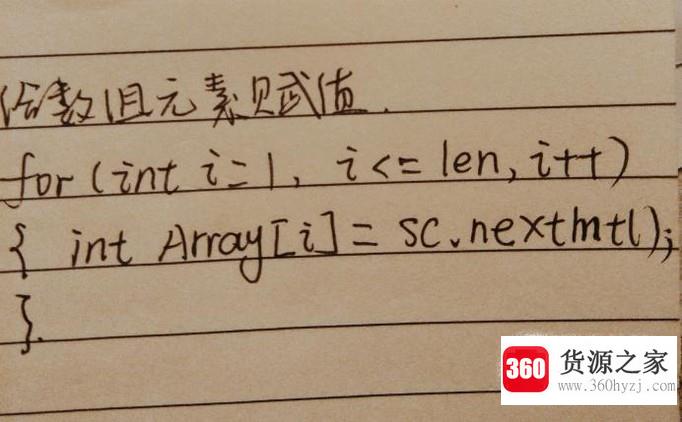 给数组元素赋值.
for (int i=1, i<=len, i++)
{ int Array[i]= sc.nextInt();
}.
360 货源之家
www.360hyzj.com